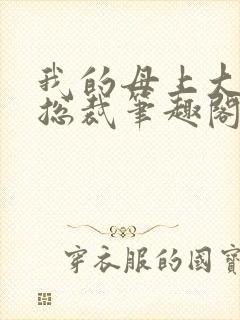 我的母上大
总裁笔趣阁
穿衣服的國寶